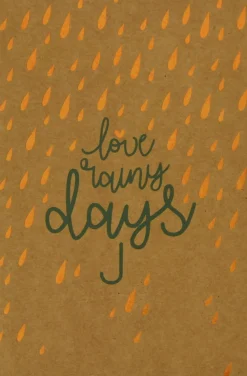 love
rainy
days